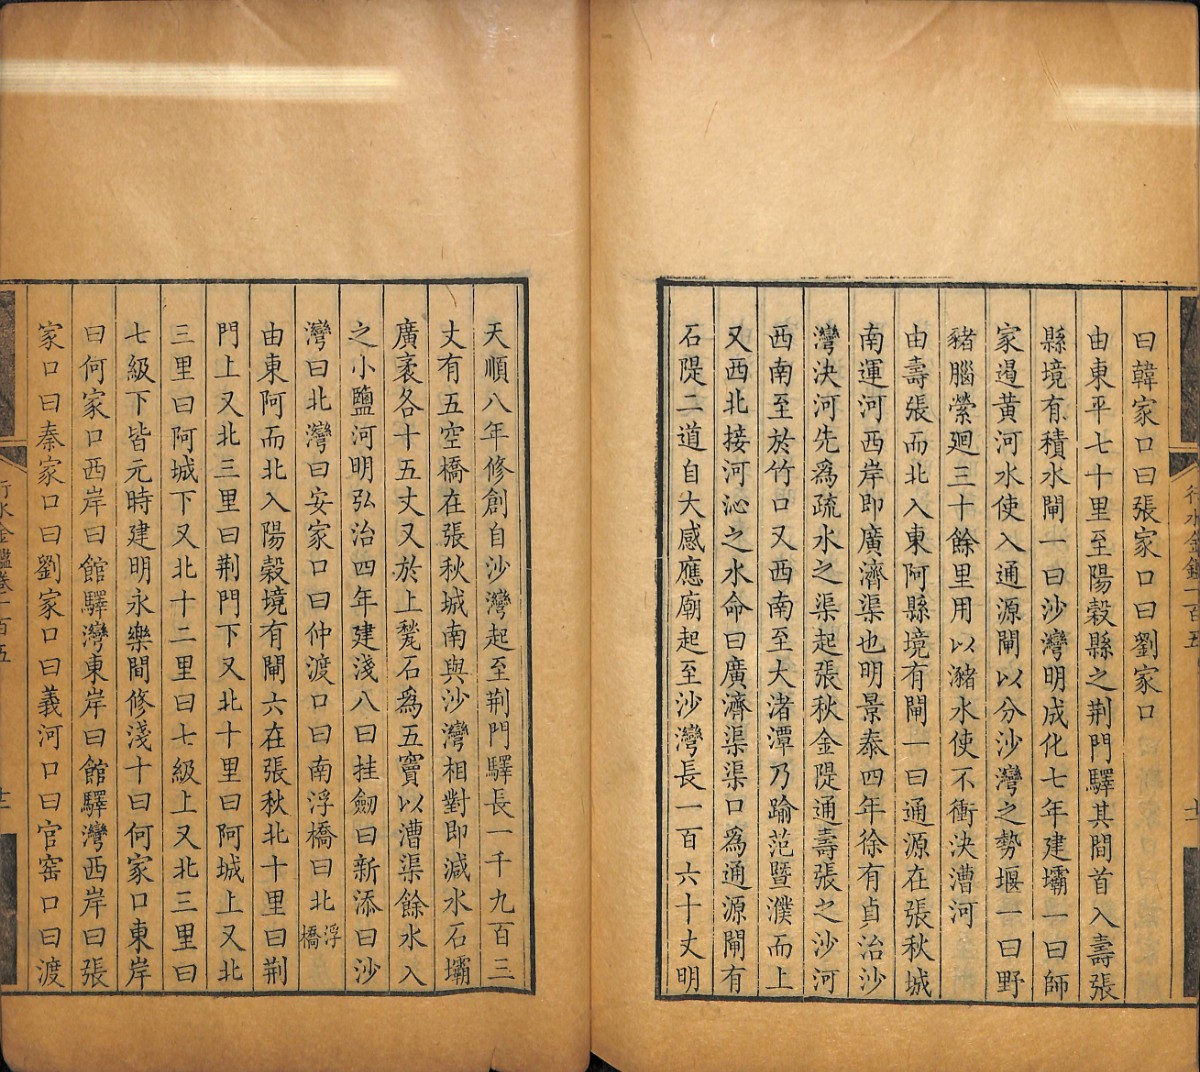 曰韓家口曰張家口曰劉家口
由東平七十里至陽穀縣之荆門驛其間首入壽張
縣境有積水閘一曰沙灣明成化七年建壩一曰師
家遏黄河水使入通源閘以分沙灣之勢堰一曰野
豬腦縈廻三十餘里用以瀦水使不衝決漕河
由壽張而北入東阿縣境有閘一曰通源在張秋城
南運河西岸即廣濟渠也明景泰四年徐有貞治沙
灣決河先爲疏水之渠起張秋金隄通壽張之沙河
西南至於竹口又西南至大渚潭乃踰范暨濮而上
又西北接河沁之水命曰廣濟渠渠口爲通源閘有
石隄二道自大感應廟起至沙灣長一百六十丈明
天順八年修創自沙灣起至荆門驛長一千九百三
丈有五空橋在張秋城南與沙灣相對即減水石壩
廣袤各十五丈又於上甃石爲五竇以漕渠餘水入
之小鹽河明弘治四年建淺八曰挂劒曰新添曰沙
灣曰北灣曰安家口曰仲渡口曰南浮橋曰北浮橋
由東阿而北入陽穀境有閘六在張秋北十里曰荆
門上又北三里曰荆門下又北十里曰阿城上又北
三里曰阿城下又北十二里曰七級上又北三里曰
七級下皆元時建明永樂間修淺十曰何家口東岸
曰何家口西岸曰館驛灣東岸曰館驛灣西岸曰張
家口曰秦家口曰劉家口曰義河口曰官窑口曰渡
行水金鑑卷一百五